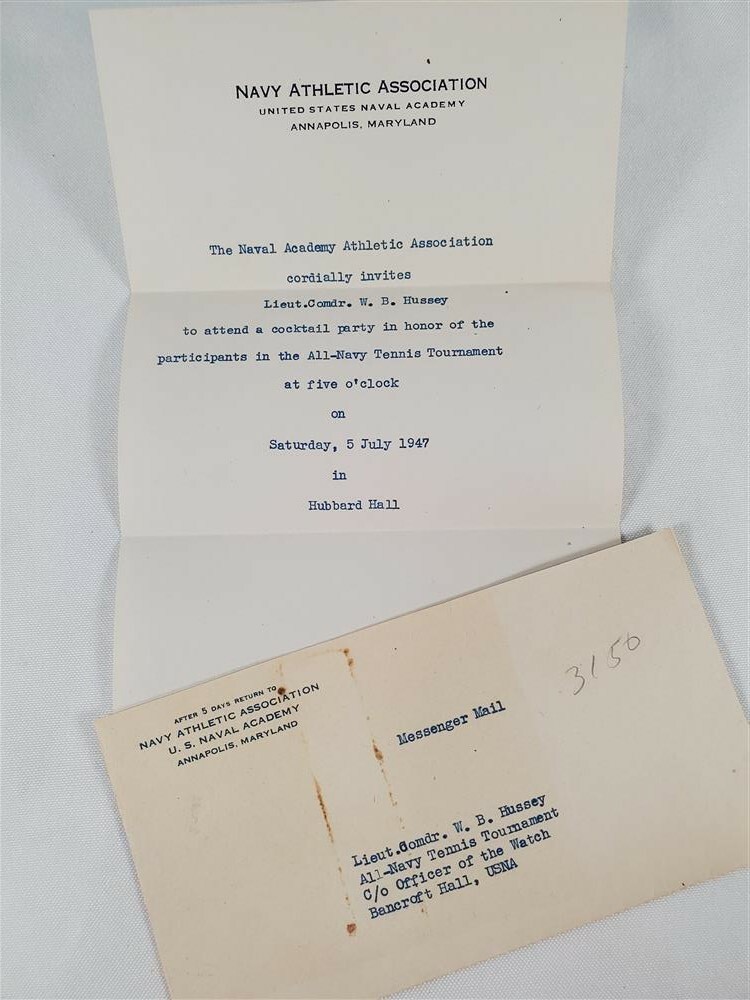 NAVY ATHLETIC ASSOCIATION
UNITED STATES NAVAL ACADEMY
ANNAPOLIS, MARYLAND
The Naval Academy Athletic Association
cordially invites
Lieut.Comdr. W. B. Hussey
to attend a cocktail party in honor of the
participants in the All-Navy Tennis Tournament
at five o'clock
on
Saturday, 5 July 1947
in
Hubbard Hall
AFTER 5 DAYS RETURN TO
NAVY ATHLETIC ASSOCIATION
U. S. NAVAL ACADEMY
ANNAPOLIS, MARYLAND
3150
Messenger Mail
Lieut.Comdr. W. B. Hussey
All-Navy Tennis Tournament
C/o Officer of the Watch
Bancroft Hall, USNA